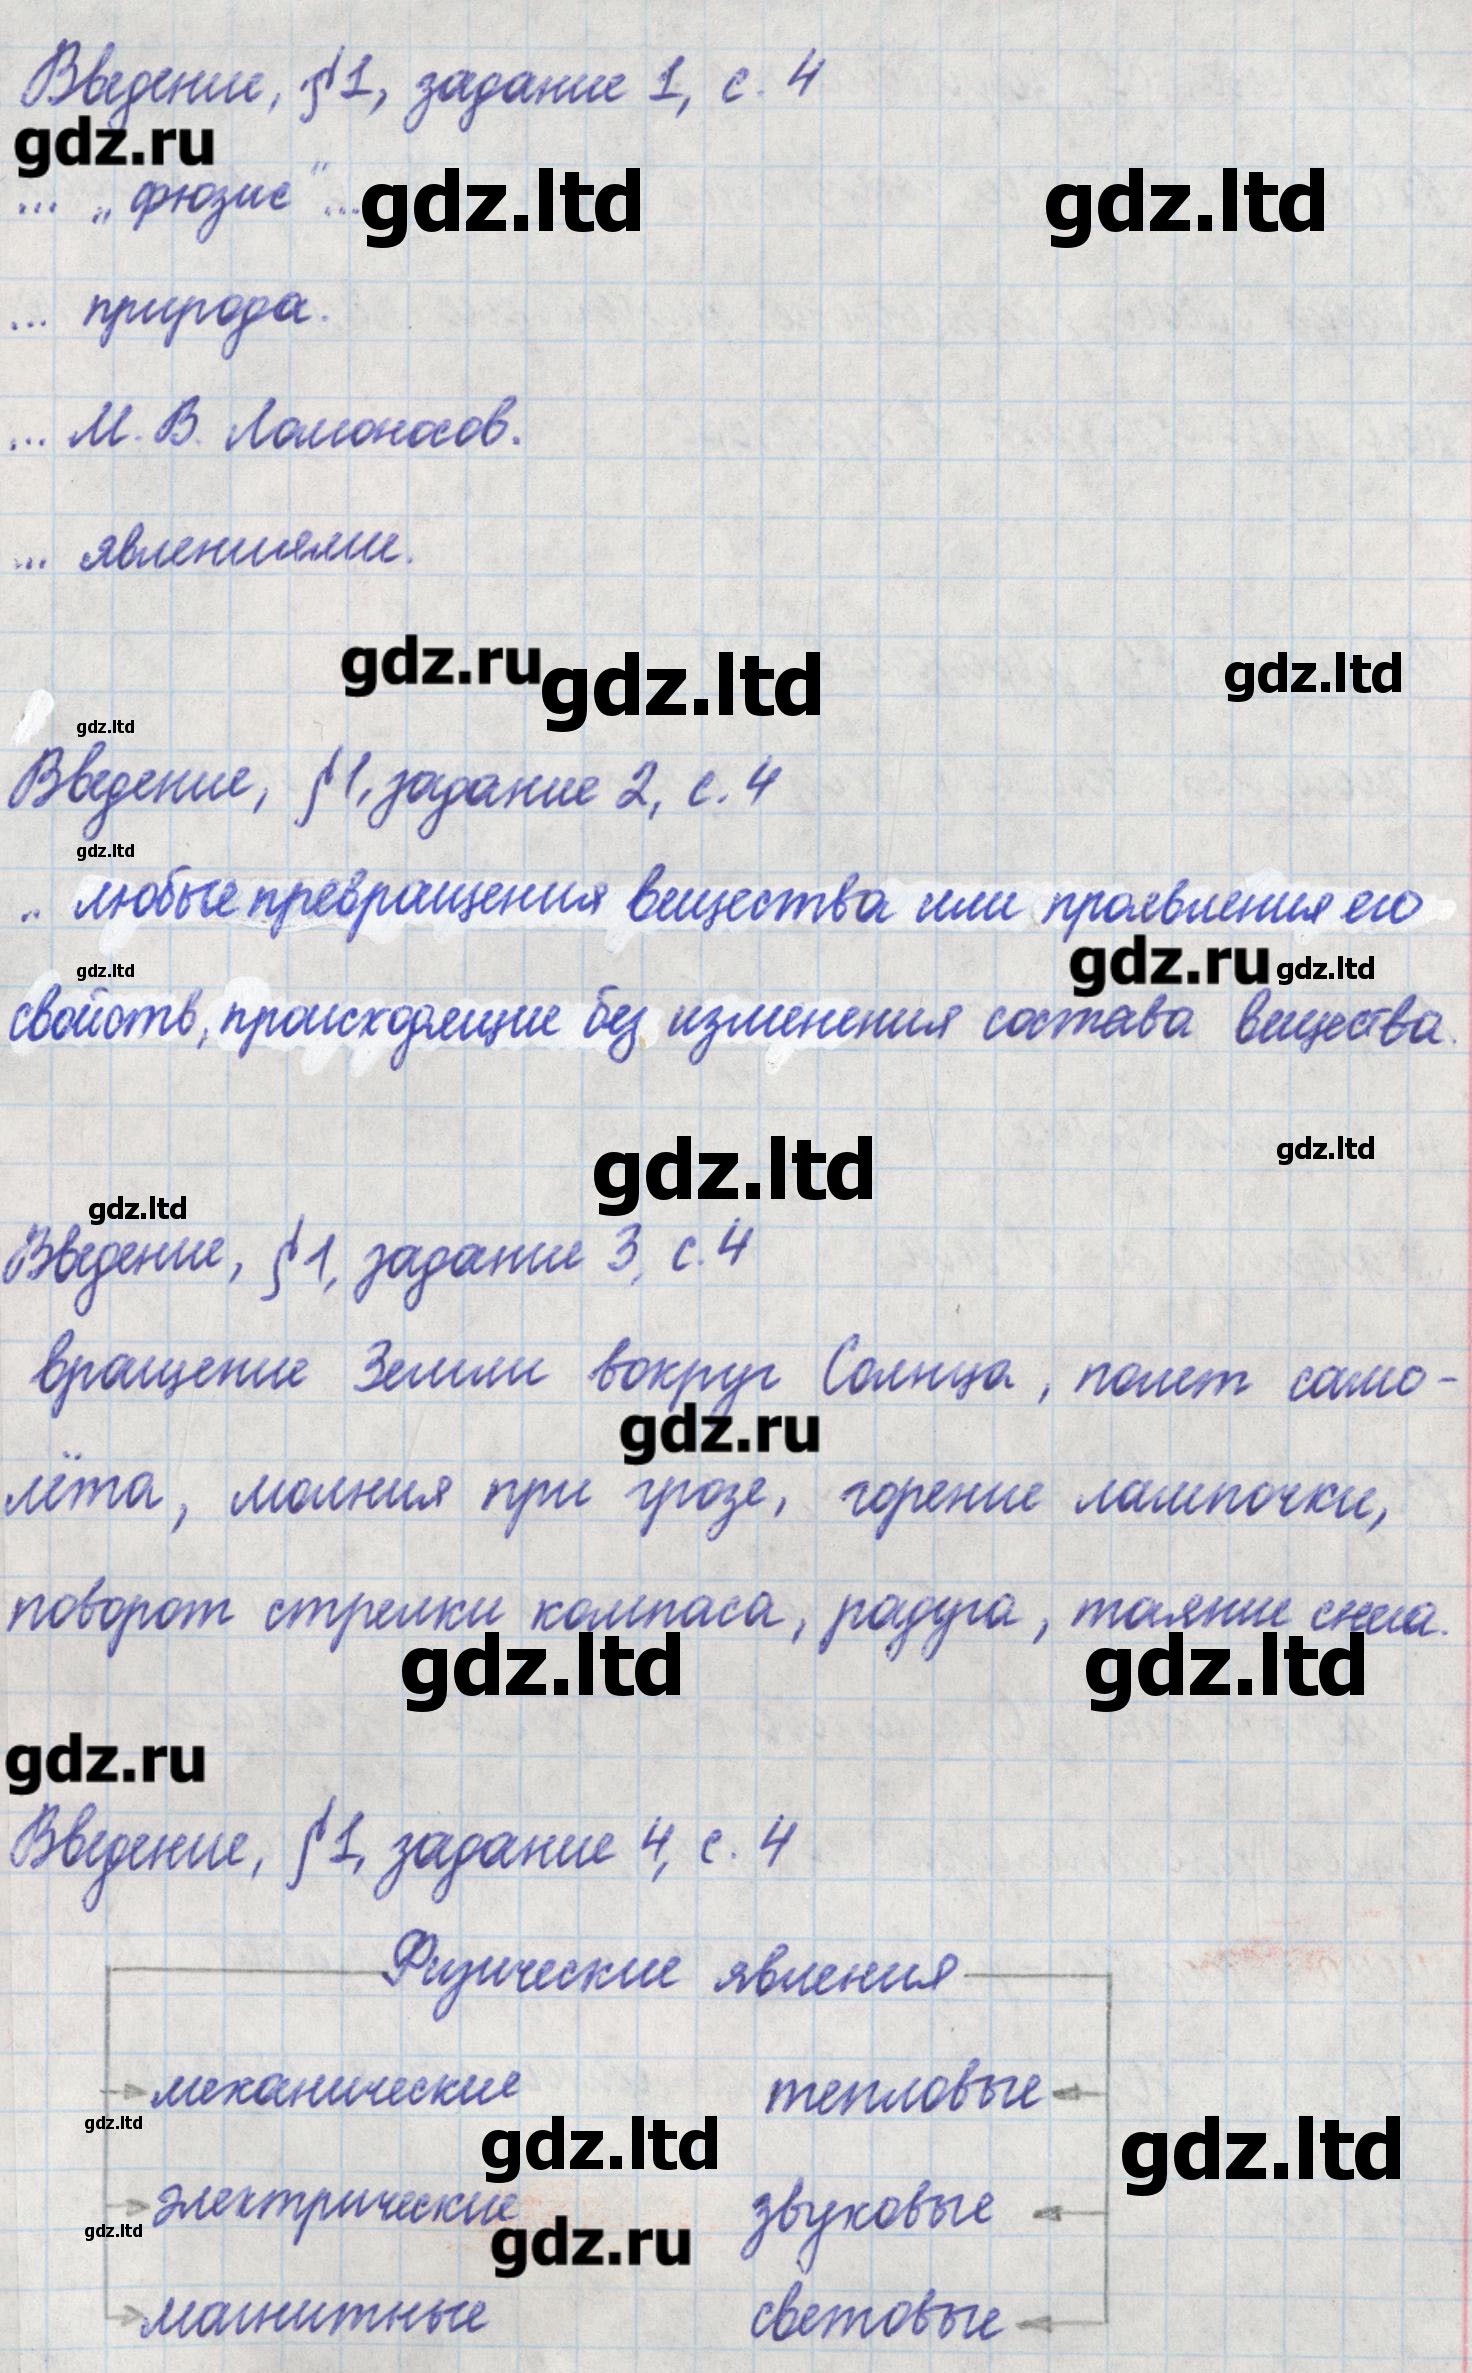 Введение, §1, задание 1, с. 4
gdz.ru
... „фюзис"...
gdz.ltd
gdz.ltd
... природа.
... М. В. Ломоносов.
... явлениями.
gdz.ru
gdz.ltd
gdz.ltd
gdz.ltd
Введение, §1, задание 2, с. 4
gdz.ltd
.. любые превращения вещества или проявления его
gdz.ru
gdz.ltd
gdz.ltd
свойств, происходящие без изменения состава вещества.
gdz.ltd
gdz.ltd
gdz.ltd
Введение, §1, задание 3, с. 4
вращение Земли вокруг Солнца, полет само-
gdz.ru
лёта, молния при грозе, горение лампочки,
поворот стрелки компаса, радуга, таяние снега.
gdz.ltd
gdz.ltd
gdz.ru
Введение, §1, задание 4, с. 4
Физические явления
механические тепловые
gdz.ltd
gdz.ltd
gdz.ltd
электрические звуковые
gdz.ltd
gdz.ru
магнитные световые